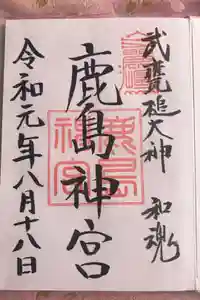 武甕槌大神 和魂
鹿島神宮
鹿島神宮
令和元年八月十八日